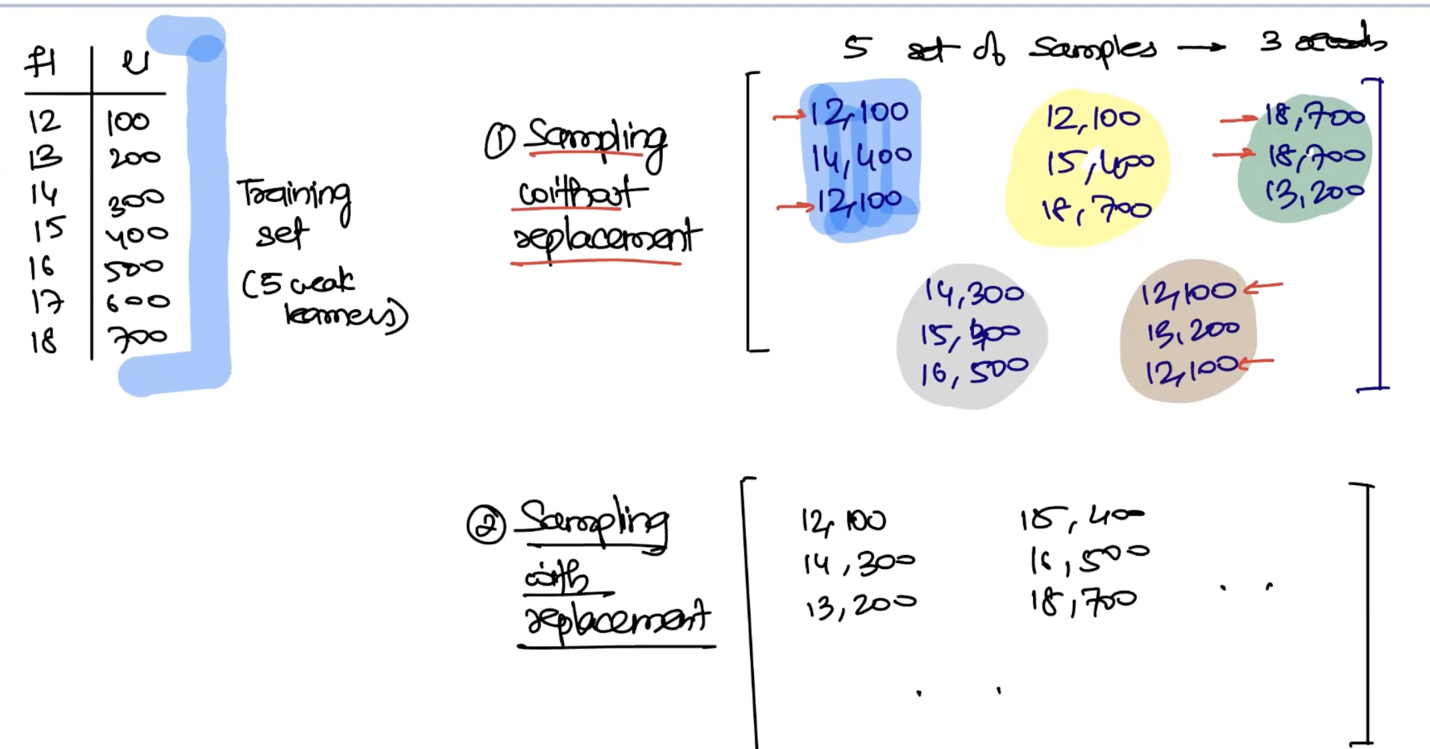 f1
12 100
13 200
14 300
15 400
16 500
17 600
18 700
Training
set
(5 weak
learners)
5 set of samples → 3
① Sampling
without
replacement
12,100
14,400
12,100
12,100
15,400
18,700
18,700
18,700
13,200
14,300
15,400
16,500
12,100
13,200
12,100
② Sampling
with
replacement
12,100
14,300
13,200
15,400
16,500
18,700